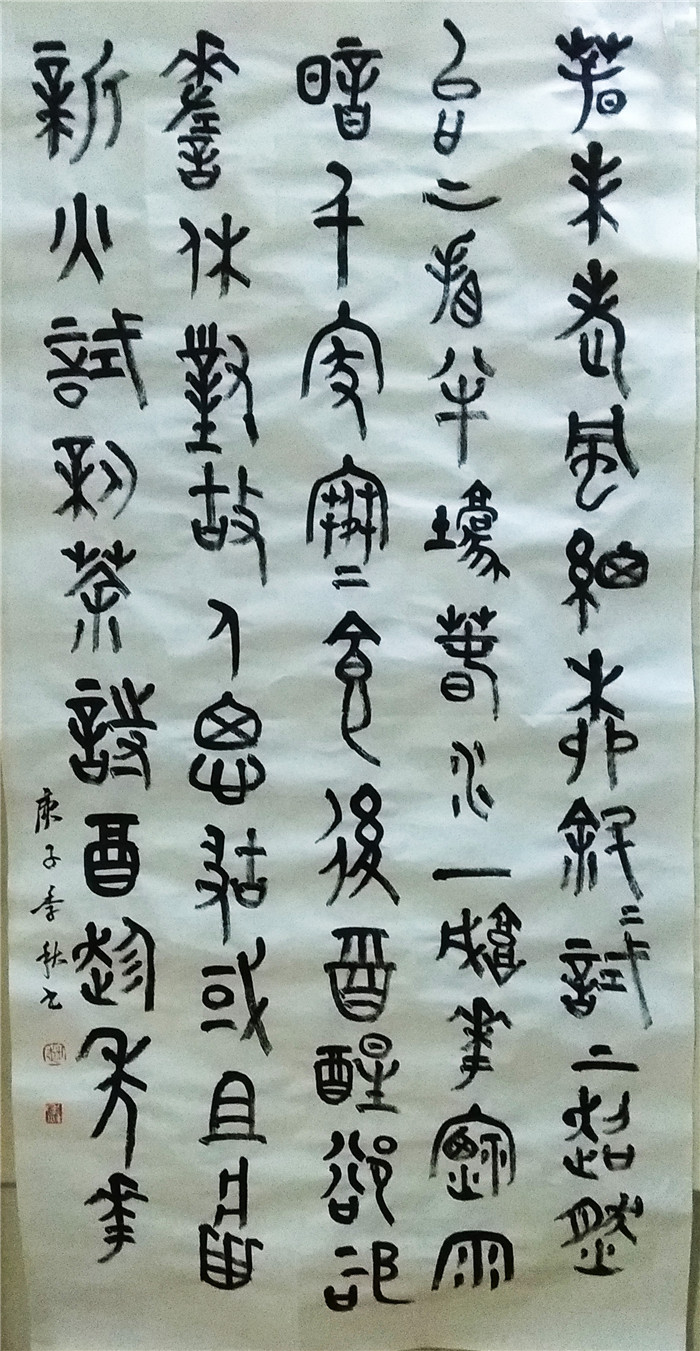 春未老風細柳斜=試上超然
台上看半壕春水一城華煙雨
暗千家寒食後酒醒卻咨
嗟休對故人思故國且將
新火試新茶詩酒趁年華
庚子季秋書